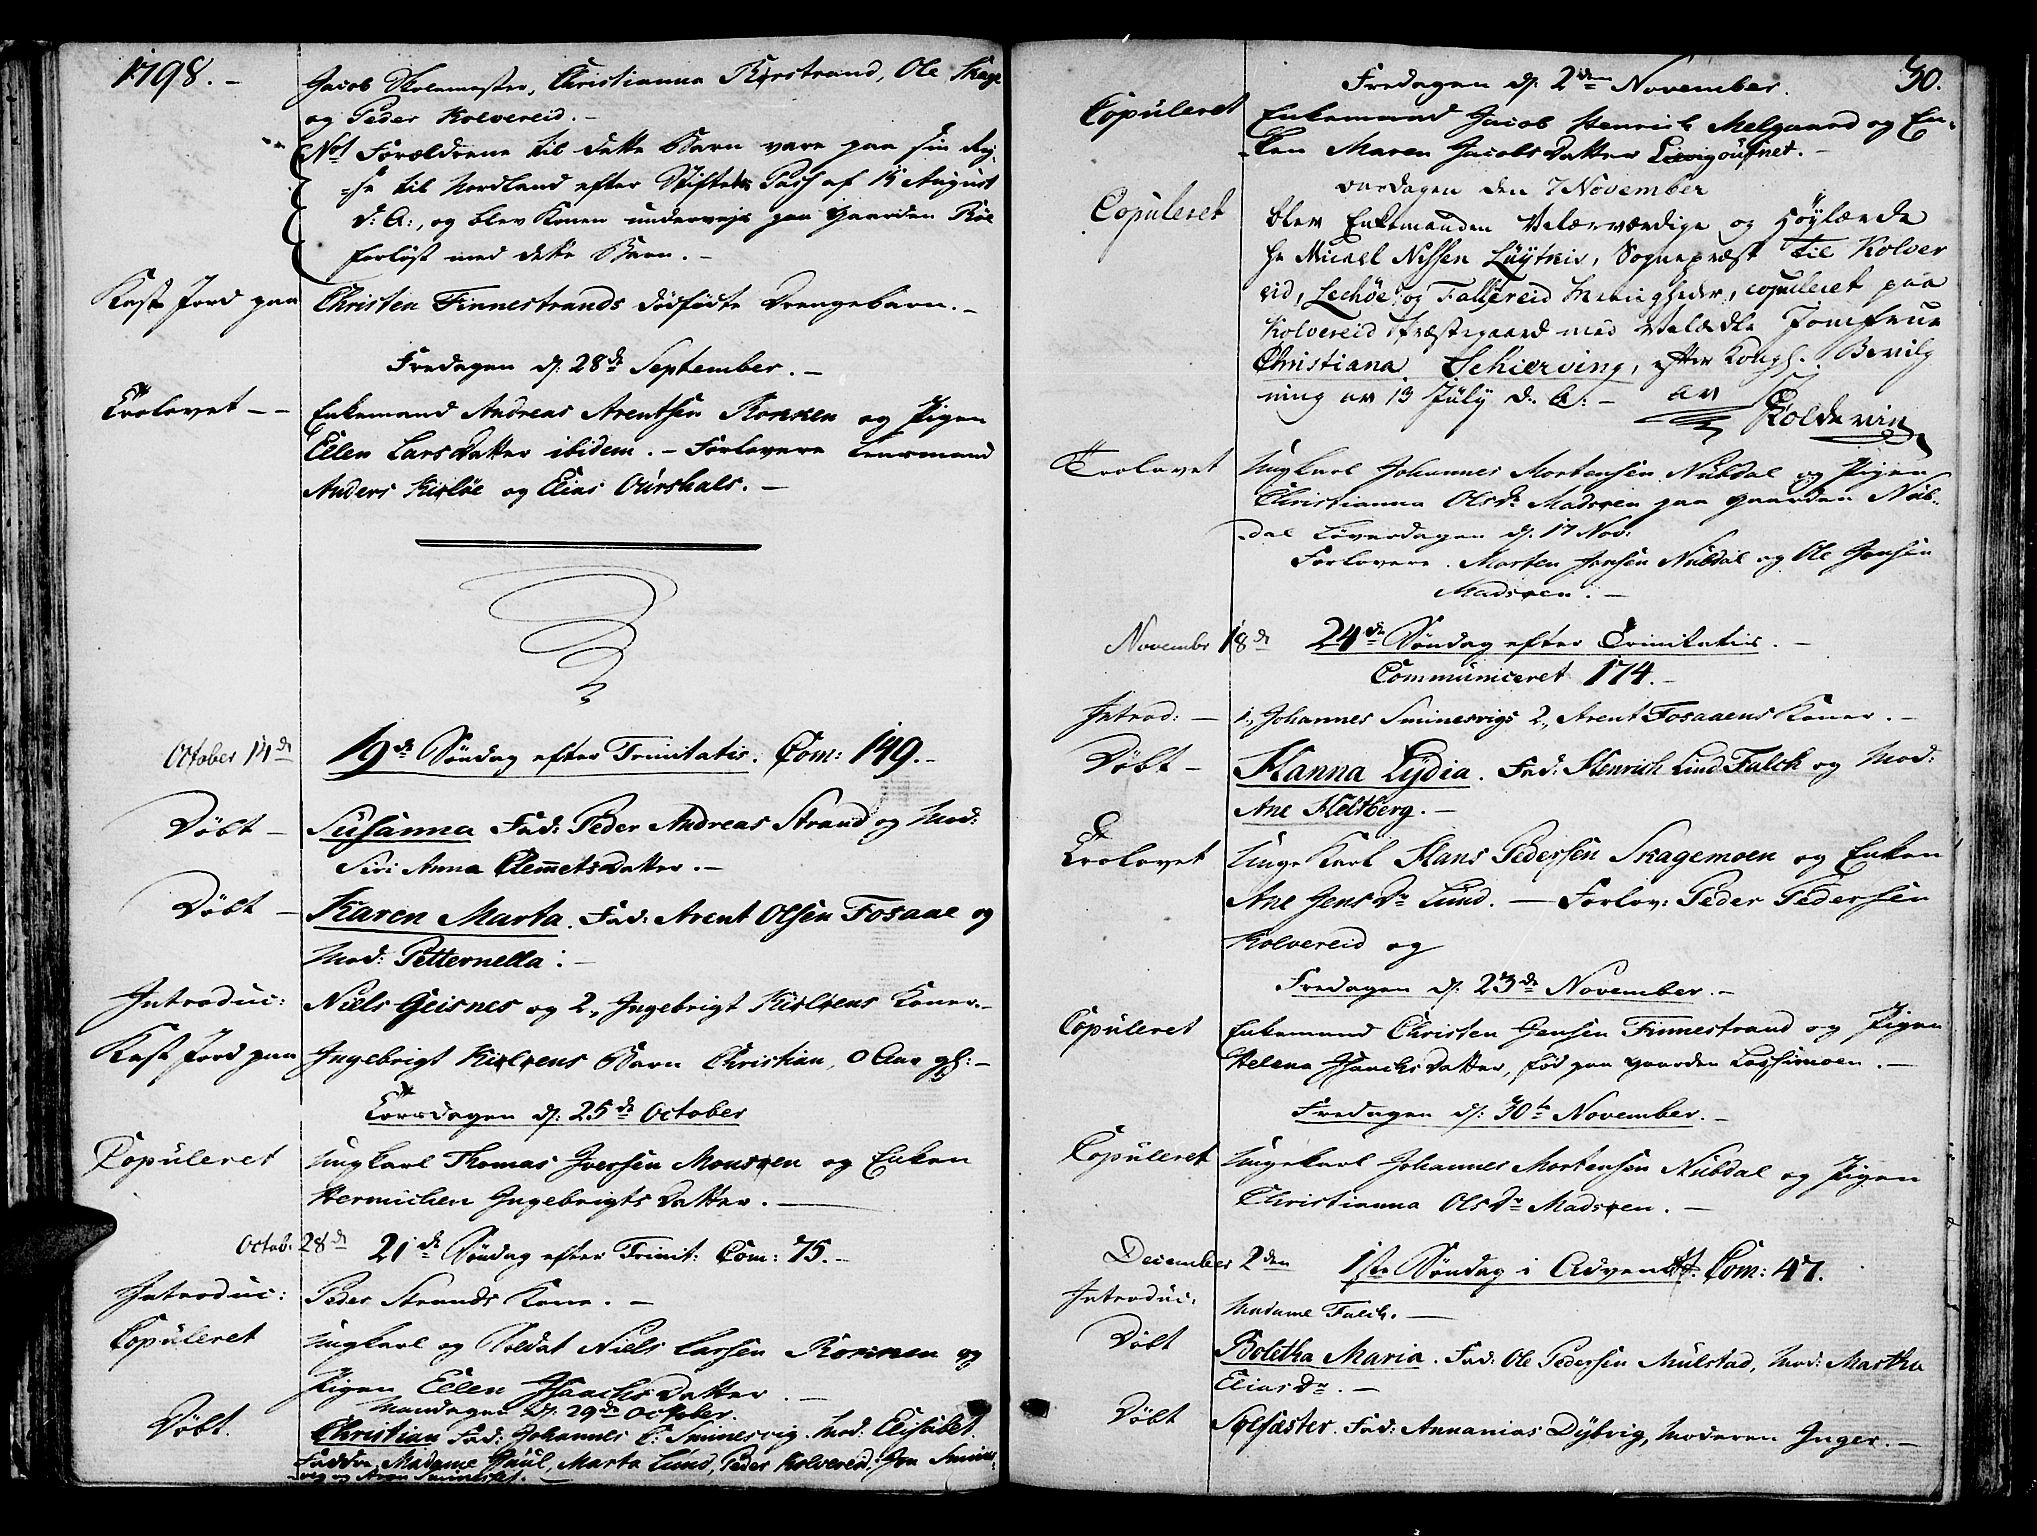 1798. -
Jacob Skolemester, Christianna Kirstrand, Ole Skage
og Peder Kolvereid. -
Not Forældrene til dette Barn vare paa sin Rej-
=se til Nordland efter Stiftets Pass af 15 August
d: A:, og blev Konen undervejs paa Gaarden Røe
forløst med dette Barn. -
Kast Jord paa Christen Finnestrands dødfødte Drengebarn. -
Fredagen d: 28de September. -
Trolovet - - Enkemand Andreas Arentsen Ronnen og Pigen
Ellen LarsDatter ibidem. - Forlovere Lensmand
Anders Kirløe og Elias Ourshals. -
October 14de 19de Søndag efter Trinitatis. Com: 149. -
Døbt - Susanna Fad: Peder Andreas Strand og Mod:
Siri Anna ClemmetsDatter. -
Døbt - Karen Marta. Fad: Arent Olsen Fosaae og
Mod: Petternella: -
Introduc: Niels Geisnes og 2, Ingebrigt Kirløens Koner. -
Kast Jord paa Ingebrigt Kirløens Barn Christian, 0 Aar gl: -
Torsdagen d: 25de October
Copuleret Ungkarl Thomas Iversen Mousøen og Enken
Hermichen IngebrigtsDatter. -
Octob. 28de 21de Søndag efter Trinit: Com: 75. -
Introduc: Peder Strands Kone. -
Copuleret Ungkarl og Soldat Niels Larsen Ronnen og
Pigen Ellen IsaachsDatter. -
Mandagen d: 29de October.
Døbt. Christian Fad: Johannes C: Sminesvig. Mod: Elisabet.
Faddre, Madame Juul, Marta Lund, Peder Kolvereid, Jon Smines-
vig og Aron Sminesset.
50.
Fredagen d: 2den November.
Copuleret Enkemand Jacob Henrich Melgaard og En-
-ken Maren JacobsDatter
Onsdagen den 7 November
Copuleret blev Enkemanden Velærværdige og Høylærde
Hr Micael Nissen Lüytkis, Sognepræst til Kolver
eid, Lechøe og Fallereid Menigheder, copulleret paa
Kolvereid Præstegaard med Velædle Jomfrue
Christiana Schierving, efter Kongl: Bevilg
ning av 13 July d. A: - av Koldevin
Trolovet Ungkarl Johannes Mortensen Nubdal og Pigen
Christianna OlsDr Madsøen paa Gaarden Nub-
dal Løverdagen d: 17 Nov:
Forlovere. Morten Jensen Nubdal og Ole Jensen
Madsøen. -
November 18de 24de Søndag efter Trinitatis. -
Communiceret 174. -
Introd: - 1, Johannes Sminesvigs 2, Arent Fosaaens Koner. -
Døbt - Hanna Lydia. Fad: Henrich Lind Falck og Mod:
Ane Heltberg. -
Trolovet Unge Karl Hans Pedersen Skagemoen og Enken
Ane JensDr Lund. - Forlov: Peder Pedersen
Kolvereid og
Fredagen d: 23de November. -
Copuleret Enkemand Christen Jensen Finnestrand og Pigen
Helena IsaachsDatter, fød paa Gaarden Lassemoen. -
Fredagen d: 30te November. -
Copuleret Ungekarl Johannes Mortensen Nubdal og Pigen
Christianna OlsDr Madsøen. -
December 2den 1ste Søndag i Advent. Com: 47.
Introduc: Madame Falch. -
Døbt Boletha Maria. Fad: Ole Pedersen Mulstad, Mod: Martha
EliasDr. -
Døbt Sylfæster. Fad: Annanias Dybvig, Moderen Inger. -